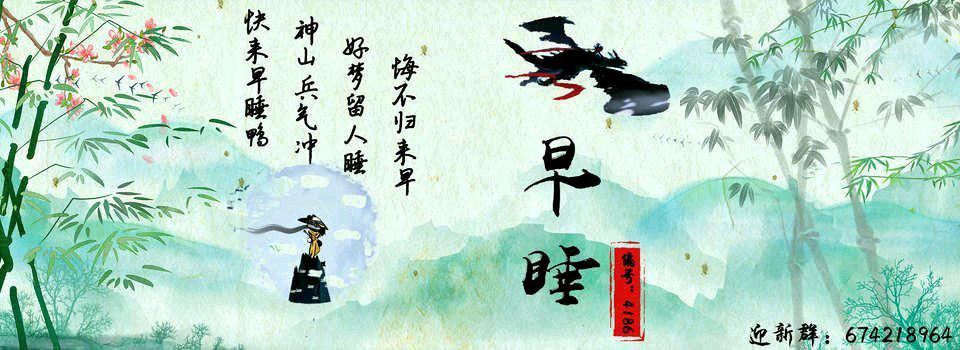 悔不归来早
好梦留人睡
神山兵气冲
快来早睡鸭
早睡
编号：4186
迎新群：674218964